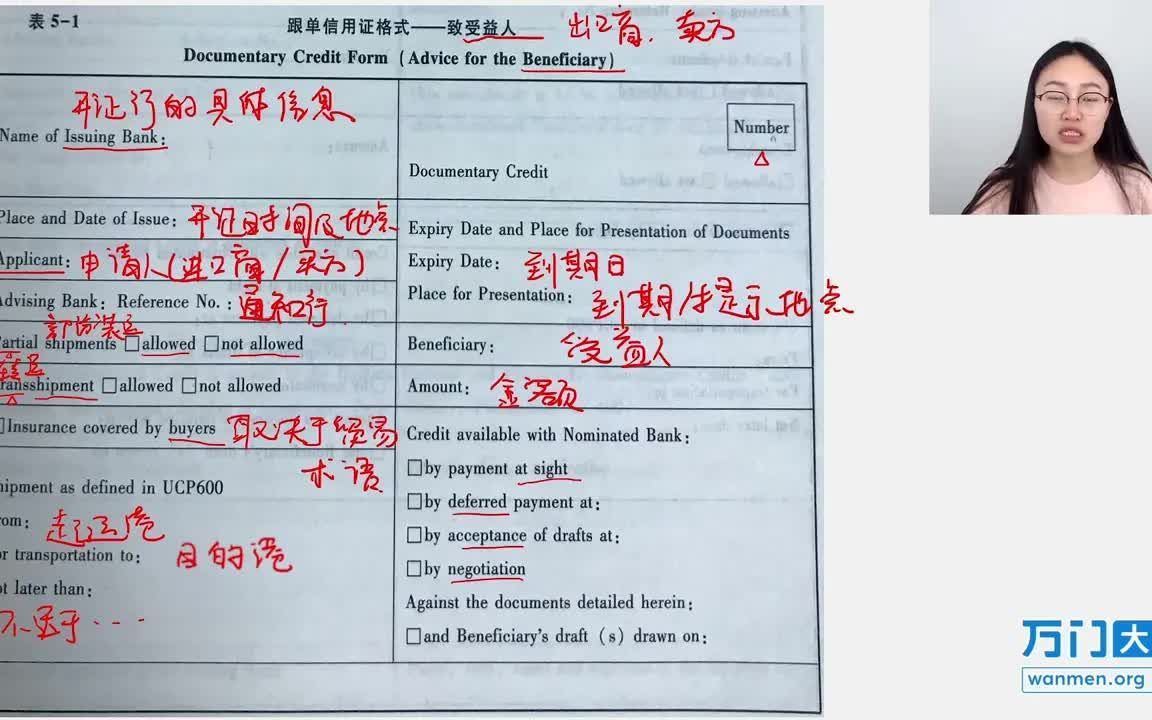 表 5-1
跟单信用证格式——致受益人 出口商、卖方
Documentary Credit Form (Advice for the Beneficiary)
开证行的具体信息
Name of Issuing Bank:
Number
Documentary Credit
Place and Date of Issue: 开证时间及地点
Expiry Date and Place for Presentation of Documents
Applicant: 申请人(进口商/买方)
Expiry Date: 到期日
Advising Bank: Reference No.: 通知行
Place for Presentation: 到期 提示地点
部份装运
artial shipments □allowed □not allowed
Beneficiary: 受益人
转运
ransshipment □allowed □not allowed
Amount: 金额
□Insurance covered by buyers 取决于贸易
术语
Credit available with Nominated Bank:
□by payment at sight
hipment as defined in UCP600
□by deferred payment at:
rom: 起运港
□by acceptance of drafts at:
or transportation to: 目的港
□by negotiation
ot later than:
不迟于···
Against the documents detailed herein:
□and Beneficiary's draft (s) drawn on:
万门大
wanmen.org